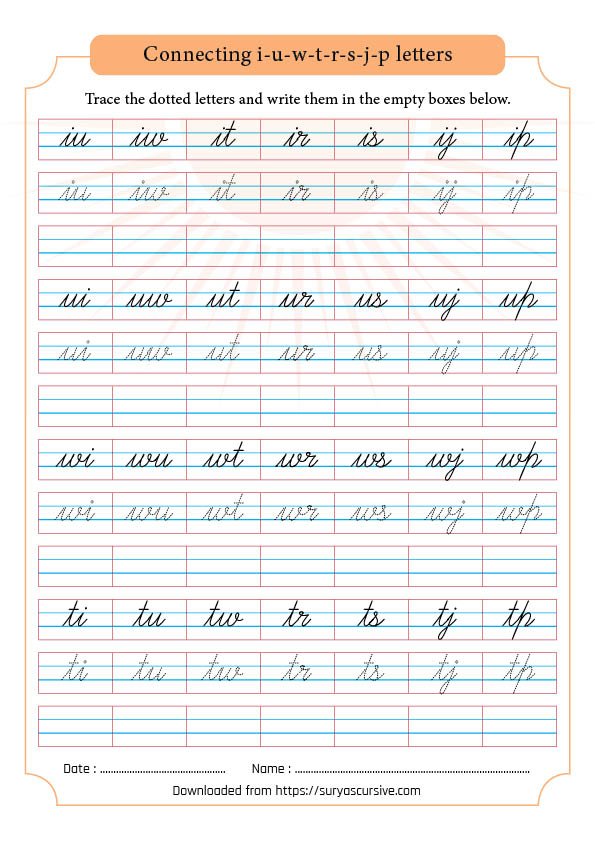 Connecting i-u-w-t-r-s-j-p letters
Trace the dotted letters and write them in the empty boxes below.
iu iw it ir is ij ip
iu iw it ir is ij ip
ui uw ut ur us uj up
ui uw ut ur us uj up
wi wu wt wr ws wj wp
wi wu wt wr ws wj wp
ti tu tw tr ts tj tp
ti tu tw tr ts tj tp
Date : ............................................. Name : ....................................................................................
Downloaded from https://suryascursive.com